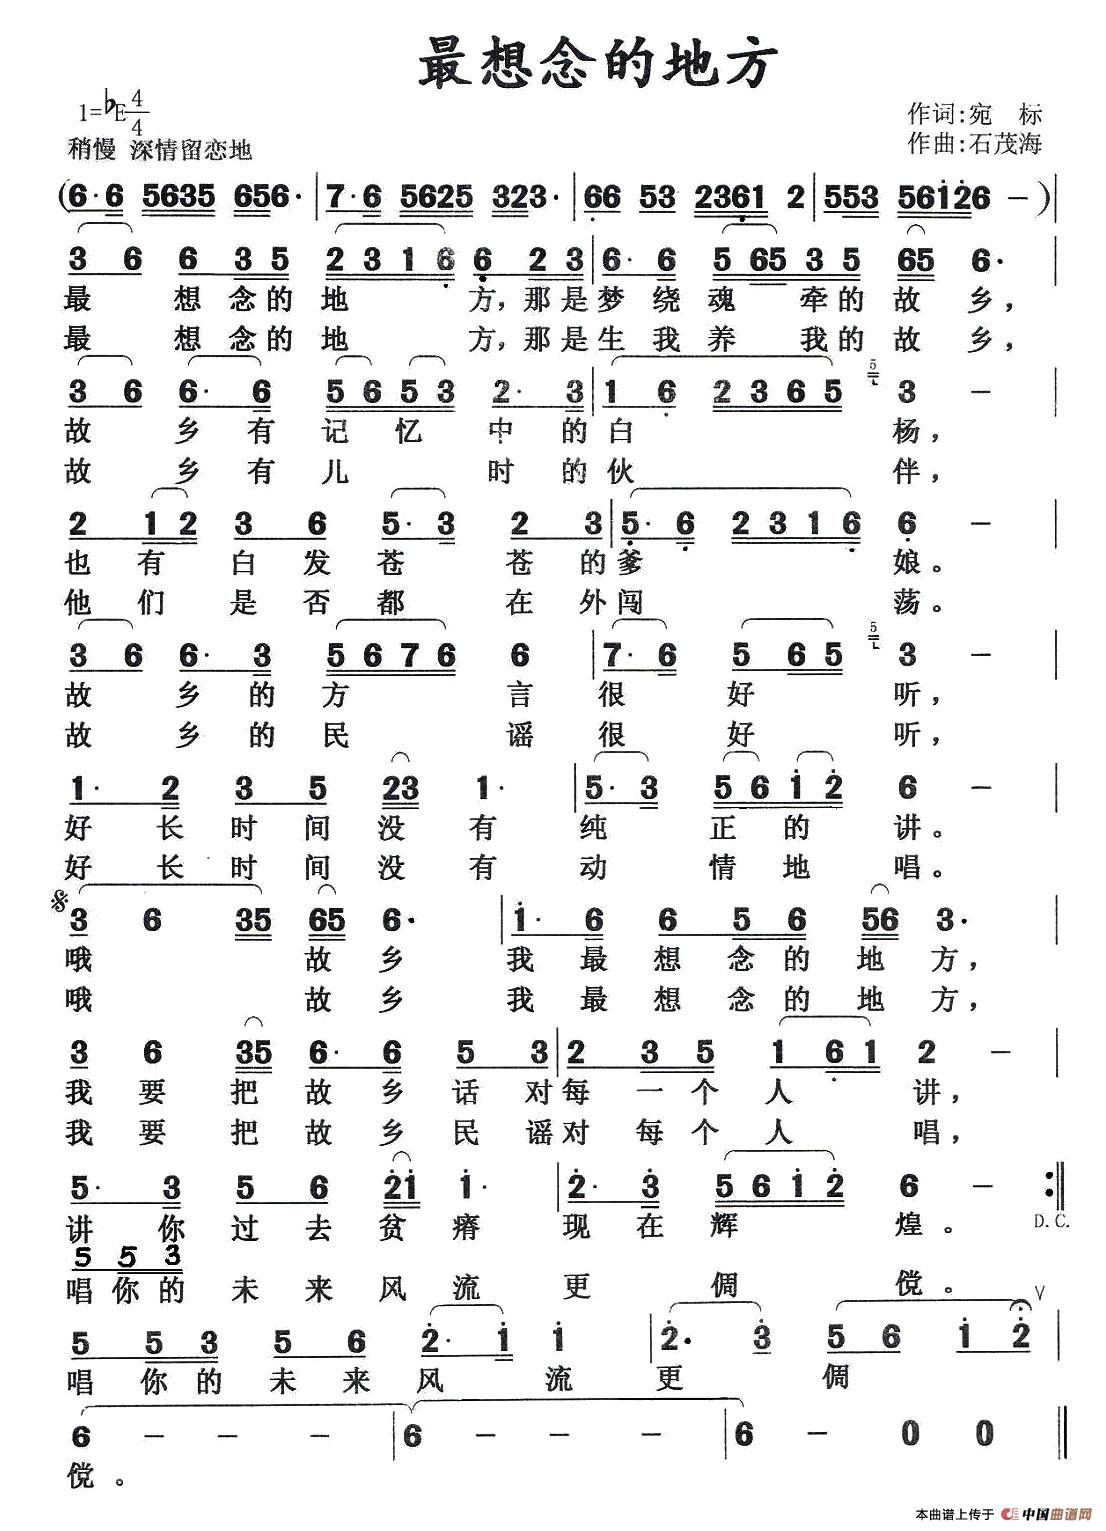 最想念的地方
1=♭E 4/4
作词:宛 标
稍慢 深情留恋地
作曲:石茂海
(6·6 5635 656· | 7·6 5625 323· | 66 53 2361 2 | 553 56126 - ) |
3 6 6 3 5 2 3 1 6 6 2 3 | 6· 6 5 65 3 5 65 6· |
最 想 念 的 地 方，那 是 梦 绕 魂 牵 的 故 乡，
最 想 念 的 地 方，那 是 生 我 养 我 的 故 乡，
3 6 6· 6 5 6 5 3 2· 3 | 1 6 2 3 6 5 5 3 - |
故 乡 有 记 忆 中 的 白 杨，
故 乡 有 儿 时 的 伙 伴，
2 1 2 3 6 5· 3 2 3 | 5· 6 2 3 1 6 6 - |
也 有 白 发 苍 苍 的 爹 娘。
他 们 是 否 都 在 外 闯 荡。
3 6 6· 3 5 6 7 6 6 | 7· 6 5 6 5 5 3 - |
故 乡 的 方 言 很 好 听，
故 乡 的 民 谣 很 好 听，
1· 2 3 5 23 1· | 5· 3 5 6 1 2 6 - |
好 长 时 间 没 有 纯 正 的 讲。
好 长 时 间 没 有 动 情 地 唱。
3 6 35 65 6· | 1· 6 6 5 6 56 3· |
哦 故 乡 我 最 想 念 的 地 方，
哦 故 乡 我 最 想 念 的 地 方，
3 6 35 6· 6 5 3 | 2 3 5 1 6 1 2 - |
我 要 把 故 乡 话 对 每 一 个 人 讲，
我 要 把 故 乡 民 谣 对 每 个 人 唱，
5· 3 5 6 21 1· | 2· 3 5 6 1 2 6 - :||
讲 你 过 去 贫 瘠 现 在 辉 煌。 D.C.
5 5 3
唱 你 的 未 来 风 流 更 倜 傥。
5 5 3 5 6 2· 1 1 | 2· 3 5 6 1 2 |
唱 你 的 未 来 风 流 更 倜
6 - - - | 6 - - - | 6 - 0 0 ||
傥。
本曲谱上传于 中国曲谱网